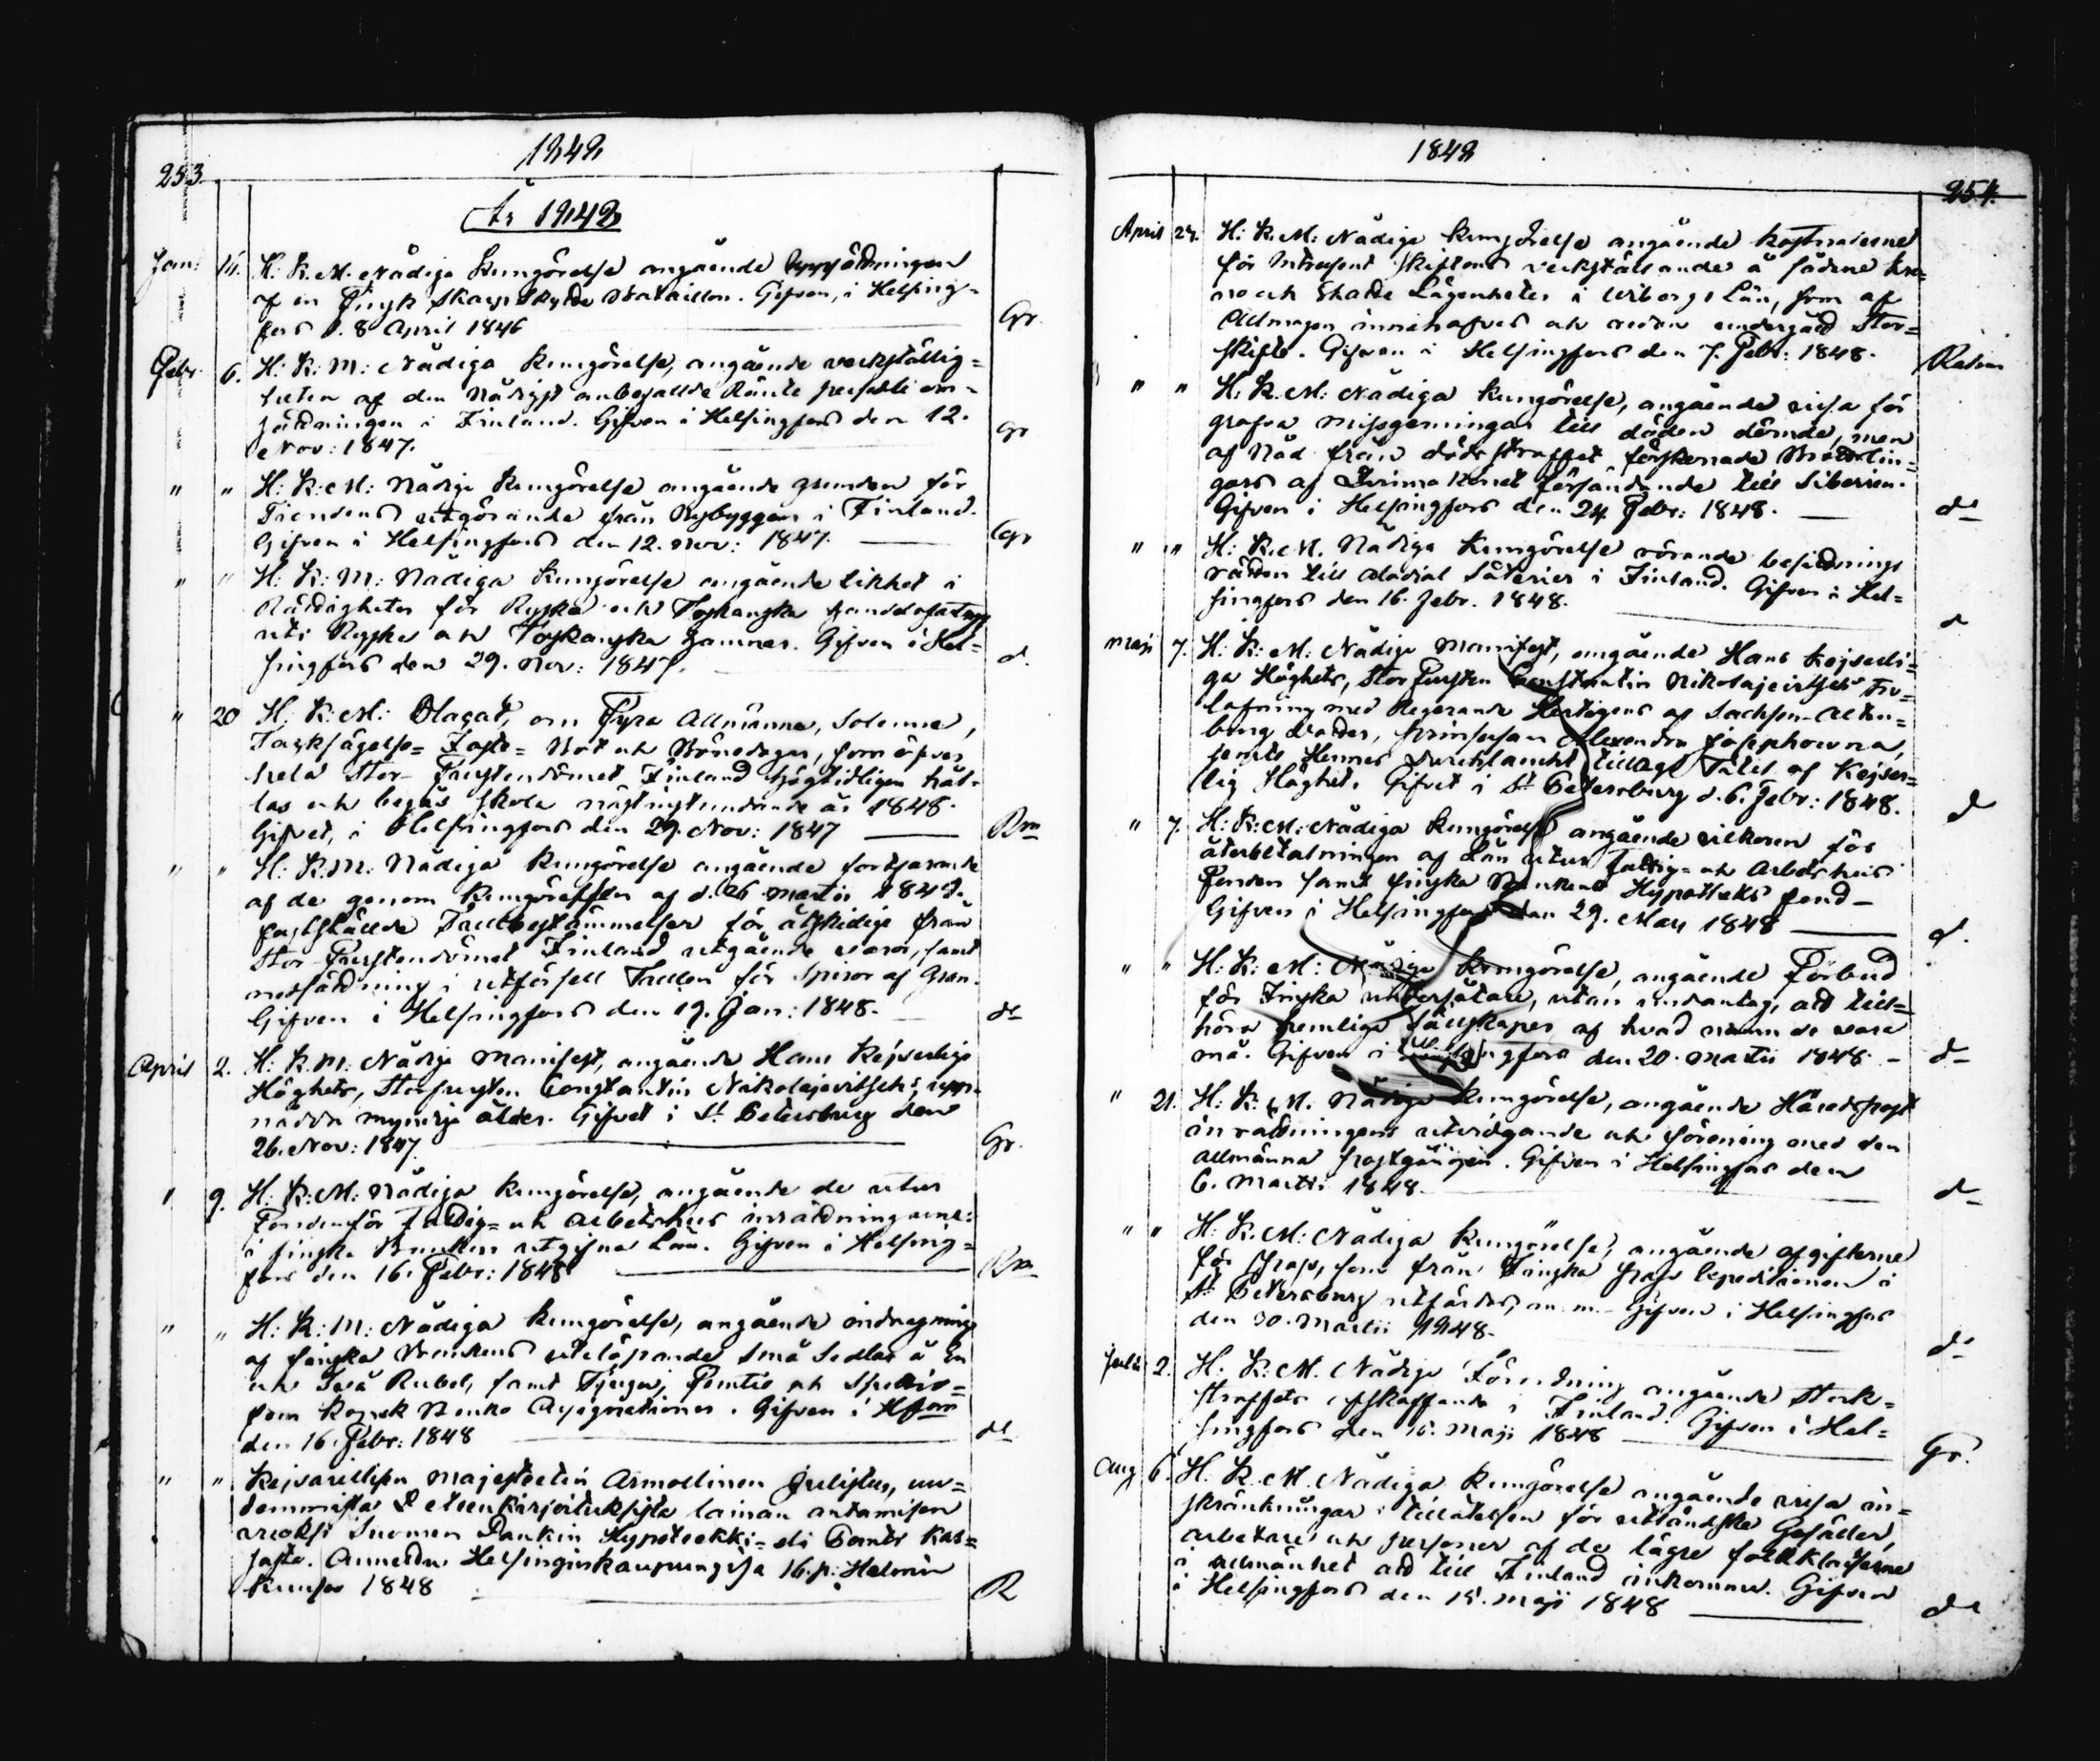 253.
1848
År 1848
Jan: 16. H: K. M. Nådiga Kungörelse angående uppsättningen
af en Finsk Skarpskytte Bataillon. Gifven, i Helsing=
fors d. 8 April 1846 Gr.
Febr. 6. H: K: M: Nådiga Kungörelse, angående verkställig=
heten af den Nådigst anbefallde Ränte persedle om=
sättningen i Finland. Gifven i Helsingfors den 12.
Nov: 1847. Gr
" " H: K: M: Nådiga Kungörelse angående grunden för
Tiondens utgörande från Nybyggen i Finland.
Gifven i Helsingfors den 12. Nov: 1847. Gr
" " H: K: M: Nådiga Kungörelse angående likhet i
Rättigheter för Ryska och Toskanska handelsfartyg
uti Ryska och Toskanska hamnar. Gifven i Hel=
singfors den 29. Nov: 1847. d.
" 20 H: K: M: Plagat, om Fyra Allmänna, Solenne,
Tacksägelse= Faste= Bot och Bönedagar, som öfver
hela Stor-Furstendömet Finland högtidligen hål=
las och begås skola nästinstundande år 1848.
Gifvet, i Helsingfors den 29. Nov: 1847 Rm
" " H: K: M: Nådiga Kungörelse angående fortfarande
af de genom Kungörelsen af d. 26 Martii 1842.
fastställde Tullbestämmelser för åtskillige från
Stor-Furstendömet Finland utgående varor, samt
nedsättning i utförsell Tullen för Spiror af Gran.
Gifven i Helsingfors den 19. Jan: 1848. do
April 2. H: K: M: Nådige Manifest, angående Hans Kejserlige
Höghets, Storfursten Constantin Nikolajevitsch's upp=
nådda myndige ålder. Gifvet i St Petersburg den
26. Nov: 1847. Gr.
" 9. H: K: M: Nådiga Kungörelse, angående de utur
Fonden för Fattig= och Arbetshus inrättningarne
i finska Banken utgifne Lån. Gifven i Helsing=
fors den 16. Febr: 1848 Rm
" " H: K: M: Nådiga Kungörelse, angående indragning
af finska Bankens utelöpande små Sedlar å En
och Två Rubel, samt Tjugu, Femtio och Sjuttio=
fem Kopek Banko Assignationer. Gifven i Hfors
den 16. Febr: 1848 do
" " Keisarillisen Majesteetin Armollinen Julistus, uu=
demmista edeskirjoituksista lainan antamisen
vuoksi Suomen Pankin Hypoteekki= eli Pantti Kas=
sasta. Annettu Helsingin kaupungisa 16. p: Helmi
kuusa 1848 R
1848
254.
April 24. H: K: M: Nådiga Kungörelse angående kostnaderne
för Intressent skiftens verkställande å sådane kro=
no och Skatte Lägenheter i Wiborgs Län, som af
Allmogen innehafves och redan undergått Stor=
skifte. Gifven i Helsingfors den 7. Febr: 1848.
" " H: K: M: Nådiga Kungörelse, angående vissa för
grofva missgerningar till döden dömde, men
af Nåd från dödsstraffet förskonade Brottslin=
gars af Qvinno könet försändande till Siberien.
Gifven i Helsingfors den 24. Febr: 1848. do
" " H: K: M. Nådiga Kungörelse rörande besittnings
rätten till Allodial Säterier i Finland. Gifven i Hel=
singfors den 16. Febr. 1848. d
Maji 7. H: K: M: Nådiga Manifest, angående Hans Kejserli=
ga Höghets, Stor Fursten Constantin Nikolajevitschs Tro=
lofning med Regerande Hertigens af Sachsen-Alten=
burg dotter, Prinsessan Alexandra Josephowna,
jemte Hennes Durchlaucht tillagt Titel af Kejser=
lig Höghet. Gifvet i St Petersburg d. 6. Febr: 1848. d
" 7. H: K: M: Nådiga Kungörelse angående vilkoren för
återbetalningen af Lån utur Fattig= och Arbetshus
Fonden samt finska Bankens Hypotheks fond—
Gifven i Helsingfors den 29. Mars 1848 d.
" " H: K: M: Nådiga Kungörelse, angående Förbud
för Finska undersåtare, utan undantag, att till=
höra hemliga sällskaper af hvad namn de vara
må. Gifven i Helsingfors den 20. Martii 1848. d—
" 21. H: K: M. Nådiga Kungörelse, angående Häradspost
inrättningens utvidgande och förening med den
allmänna postgången. Gifven i Helsingfors den
6. Martii 1848. d—
" " H: K. M: Nådiga Kungörelse, angående afgifterne
för Pass, som från Finska Pass Expeditionen i
St Petersburg utfärdas, m. m. Gifven i Helsingfors
den 30. Martii 1848. do
Julii 2. H: K: M. Nådiga Förordning angående Stock=
straffets afskaffande i Finland. Gifven i Hel=
singfors den 15. Maji 1848 Gr.
Aug 6. H: K: M. Nådiga Kungörelse angående vissa in=
skränkningar i tillåtelsen för utländske Gesäller,
arbetare och personer af de lägre folkklasserne
i allmänhet att till Finland inkomma. Gifven
i Helsingfors den 15. Maji 1848 do